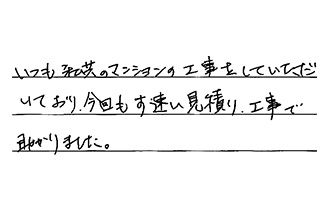 いつも私共のマンションの工事をしていただ
いており、今回もす速い見積り、工事で
助かりました。